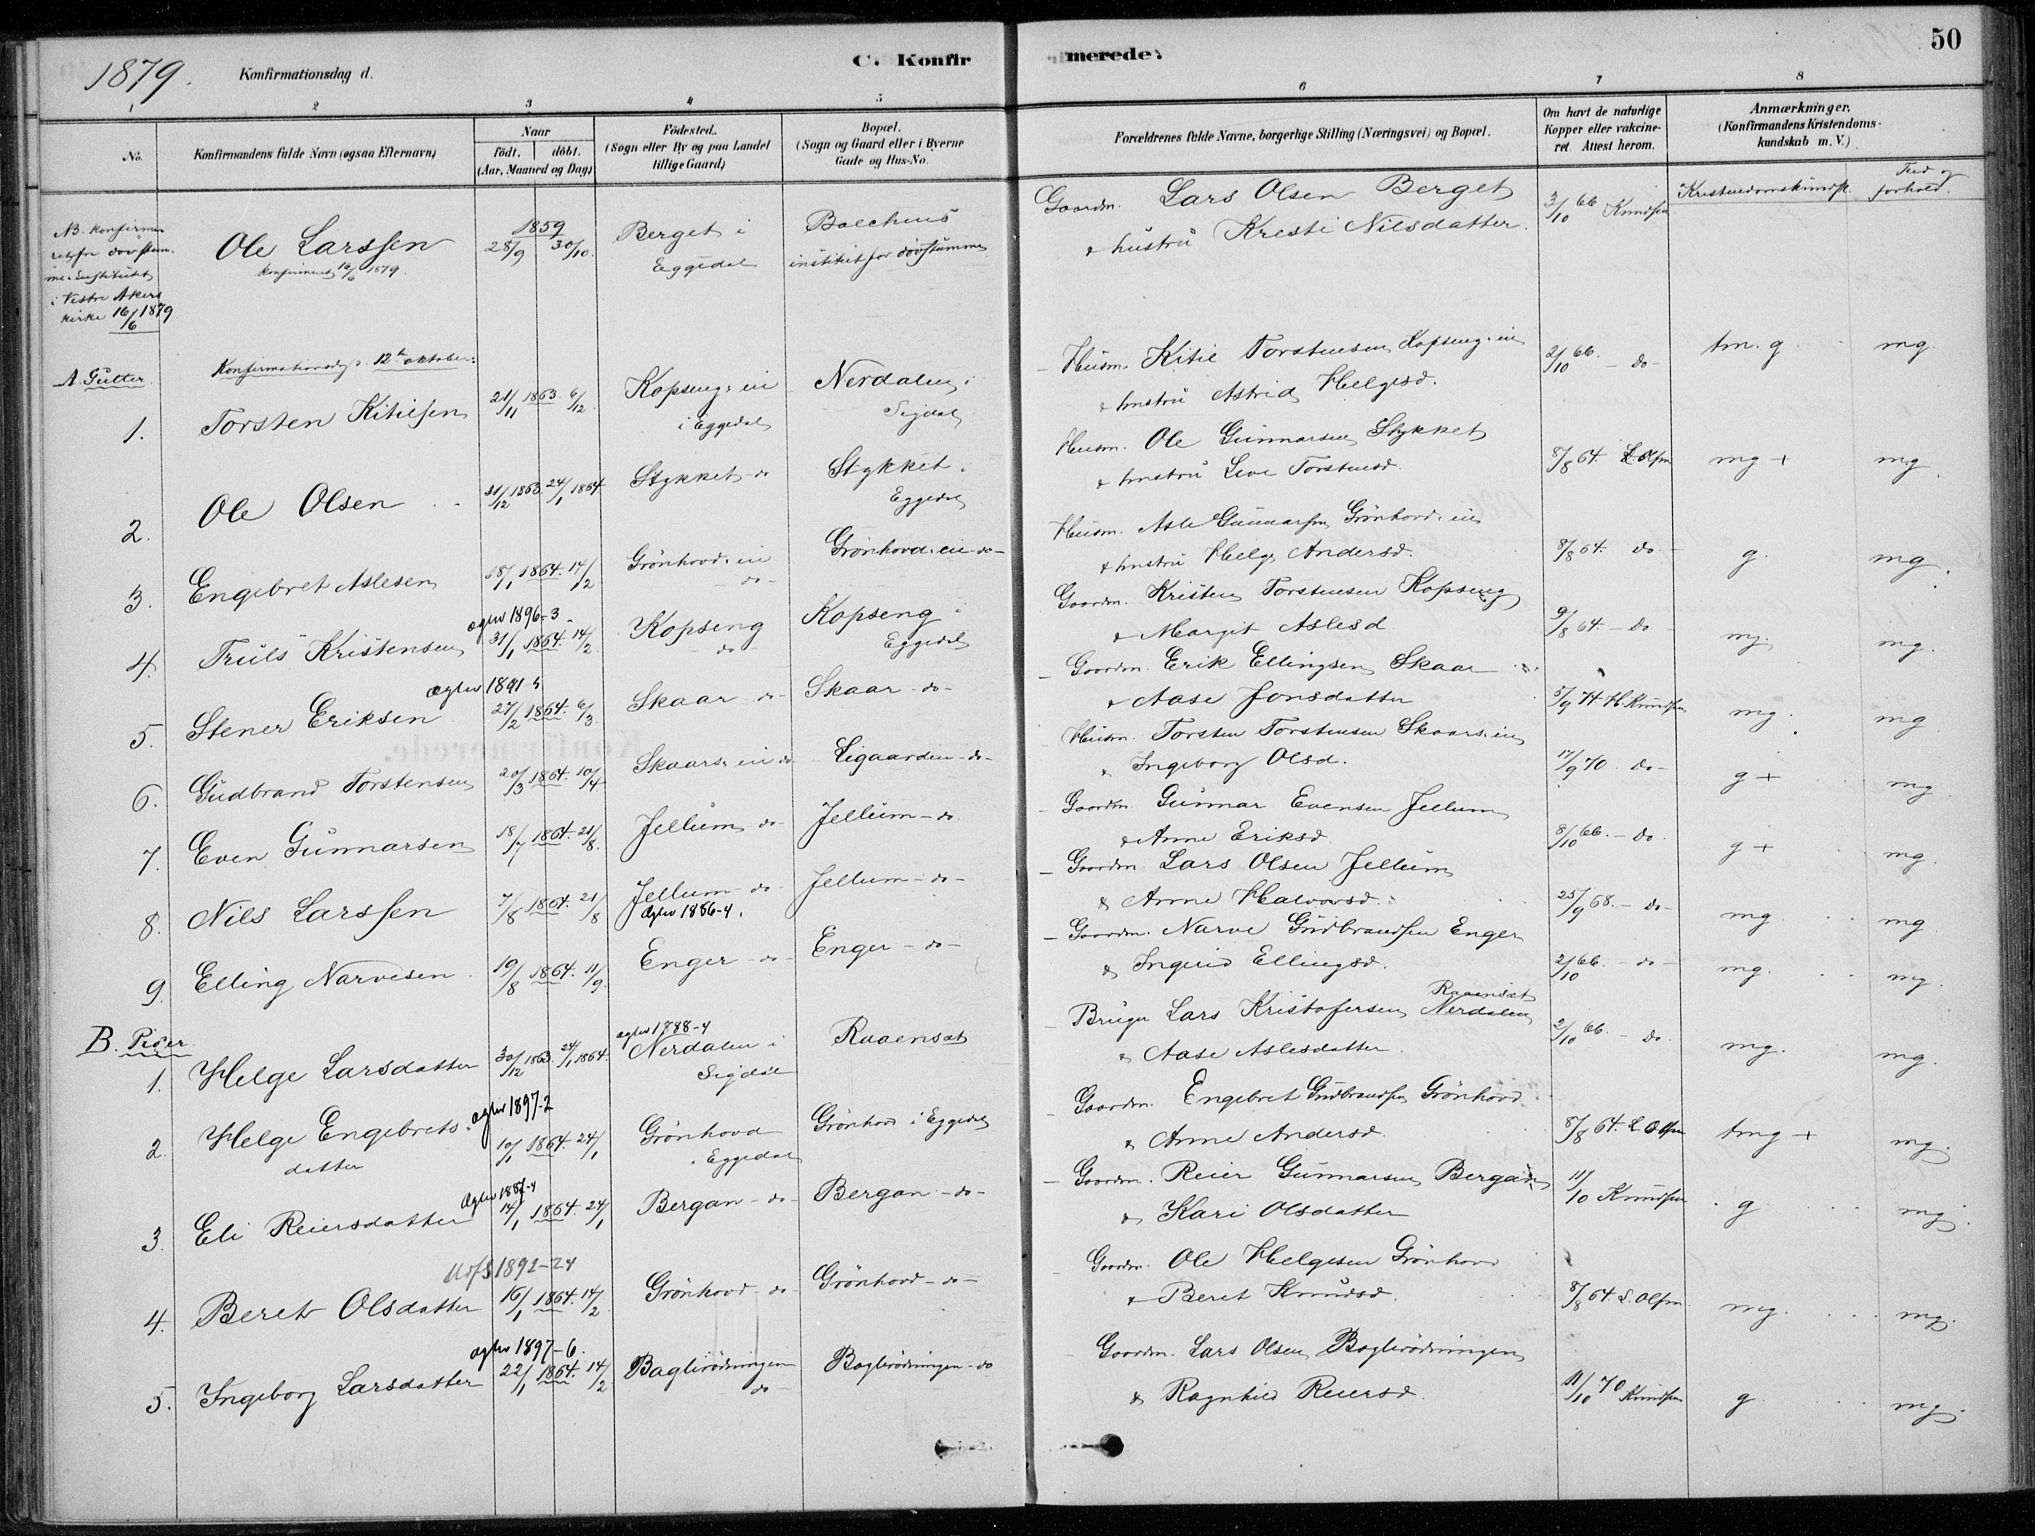 1879. Konfirmationsdag d. C. Konfirmerede. 50
1 2 3 4 5 6 7 8
No. Konfirmandens fulde Navn (ogsaa Efternavn) Naar födt. döbt. (Aar, Maaned og Dag) Födested. (Sogn eller By og paa Landet tillige Gaard) Bopæl. (Sogn og Gaard eller i Byerne Gade og Hus-No. Forældrenes fulde Navne, borgerlige Stilling (Næringsvei) og Bopæl. Om havt de naturlige Kopper eller vakcineret. Attest herom. Anmærkninger. (Konfirmandens Kristendomskundskab m. V.)
Kristendomskundsk. Flid og forhold.
NB. konfirmeret for døvstumme Institutet i Vestre Akers kirke 16/6 1879
Ole Larssen konfirmert 16/6 1879. 1859 28/9 30/10 Berget i Eggedal Balchens institut for døvstumme Gaardm. Lars Olsen Berget & hustru Kresti Nilsdatter. 3/10 66 Knudsen
A. Gutter. Konfirmationsdag d. 12te oktober:
1. Torsten Kitilsen 21/11 1863. 6/12. Kopseng: ei i Eggedal Nerdalen i Sigdal Husm. Kitil Torstensen Kopseng: ei & hustru Astrid Helgesd. 2/10 66. - do- tm. g. mg.
2. Ole Olsen 21/12 1863. 24/1 1864. Stykket do Stykket i Eggedal Husm. Ole Gunnarsen Stykket & hustru Live Torstensd. 8/8 64. L Olsen mg + mg.
3. Engebret Aslesen 18/1 1864. 14/2 Grönhovd: ei do- Grönhovd: ei -do- Husm. Asle Gunnarsen Grönhovd: ei & hustru Helge Andersd. 8/8 64. do- g. mg.
4. Truls Kristensen ægtev 1896-3 31/1 1864. 14/2. Kopseng do Kopseng i Eggedal Gaardm. Kristen Torstensen Kopseng & Margit Aslesd. 9/8 64. - do - mg. mg.
5. Stener Eriksen ægtev 1891-5 27/2 1864. 6/3. Skaar do- Skaar - do- Gaardm. Erik Ellingsen Skaar & Aase Jonsdatter 5/9 74 H Knudsen mg. mg
6. Gudbrand Torstensen 20/3 1864. 10/4 Skaars: ei do Ligaarden -do- Husm. Torsten Torstensen Skaars: ei & Ingeborg Olsd. 17/9 70. do- g + mg
7. Even Gunnarsen 18/7 1864. 21/8. Jellum do- Jellum - do Gaardm. Gunnar Evensen Jellum & Anne Eriksd. 8/10 66. - do. g + mg.
8. Nils Larssen 7/8 1864. 21/8 Jellum - do- Ægtev 1886-4. Jellum - do - Gaardm. Lars Olsen Jellum & Anne Halvorsd. 25/9 68. - do- mg. mg
9. Elling Narvesen. 19/8 1864. 11/9. Enger - do- Enger - do- Gaardm. Narve Gudbrandsen Enger & Ingrid Ellingsd. 2/10 66. - do - mg. mg.
B. Piger.
1. Helge Larsdatter 30/12 1863. 24/1 1864. ægtev 1888-4 Nerdalen i Sigdal Raaensæt Bruger Lars Kristofersen Nerdalen Raaensæt & Aase Aslesdatter. 2/10 66. - do. mg. mg.
2. Helge Engebretsdatter ægtev 1897-2 10/1 1864. 24/1 Grönhovd i Eggedal Grönhov i Eggedal Gaardm. Engebret Gudbrandsen Grönhovd & Anne Andersd. 8/8 64. L Olsen tmg + mg.
3. Eli Reiersdatter Ægtev 1887-4 14/1 1864. 24/1 Bergan - do- Bergan - do- Gaardm. Reier Gunnarsen Bergan & Kari Olsdatter 11/10 Knudsen g mg.
4. Beret Olsdatter 1892-24 16/1 1864. 14/2 Grönhovd - do- Grönhovd - do- Gaardm. Ole Helgesen Grönhovd & Beret Knudsd. 8/8 64. L. Olsen mg. mg.
5. Ingeborg Larsdatter ægtev 1897-6. 22/1 1864. 14/2 Baglirödningen do- Baglirödningen - do Gaardm. Lars Olsen Baglirödningen & Ragnhild Reiersd. 11/10 70 Knudsen g. mg.